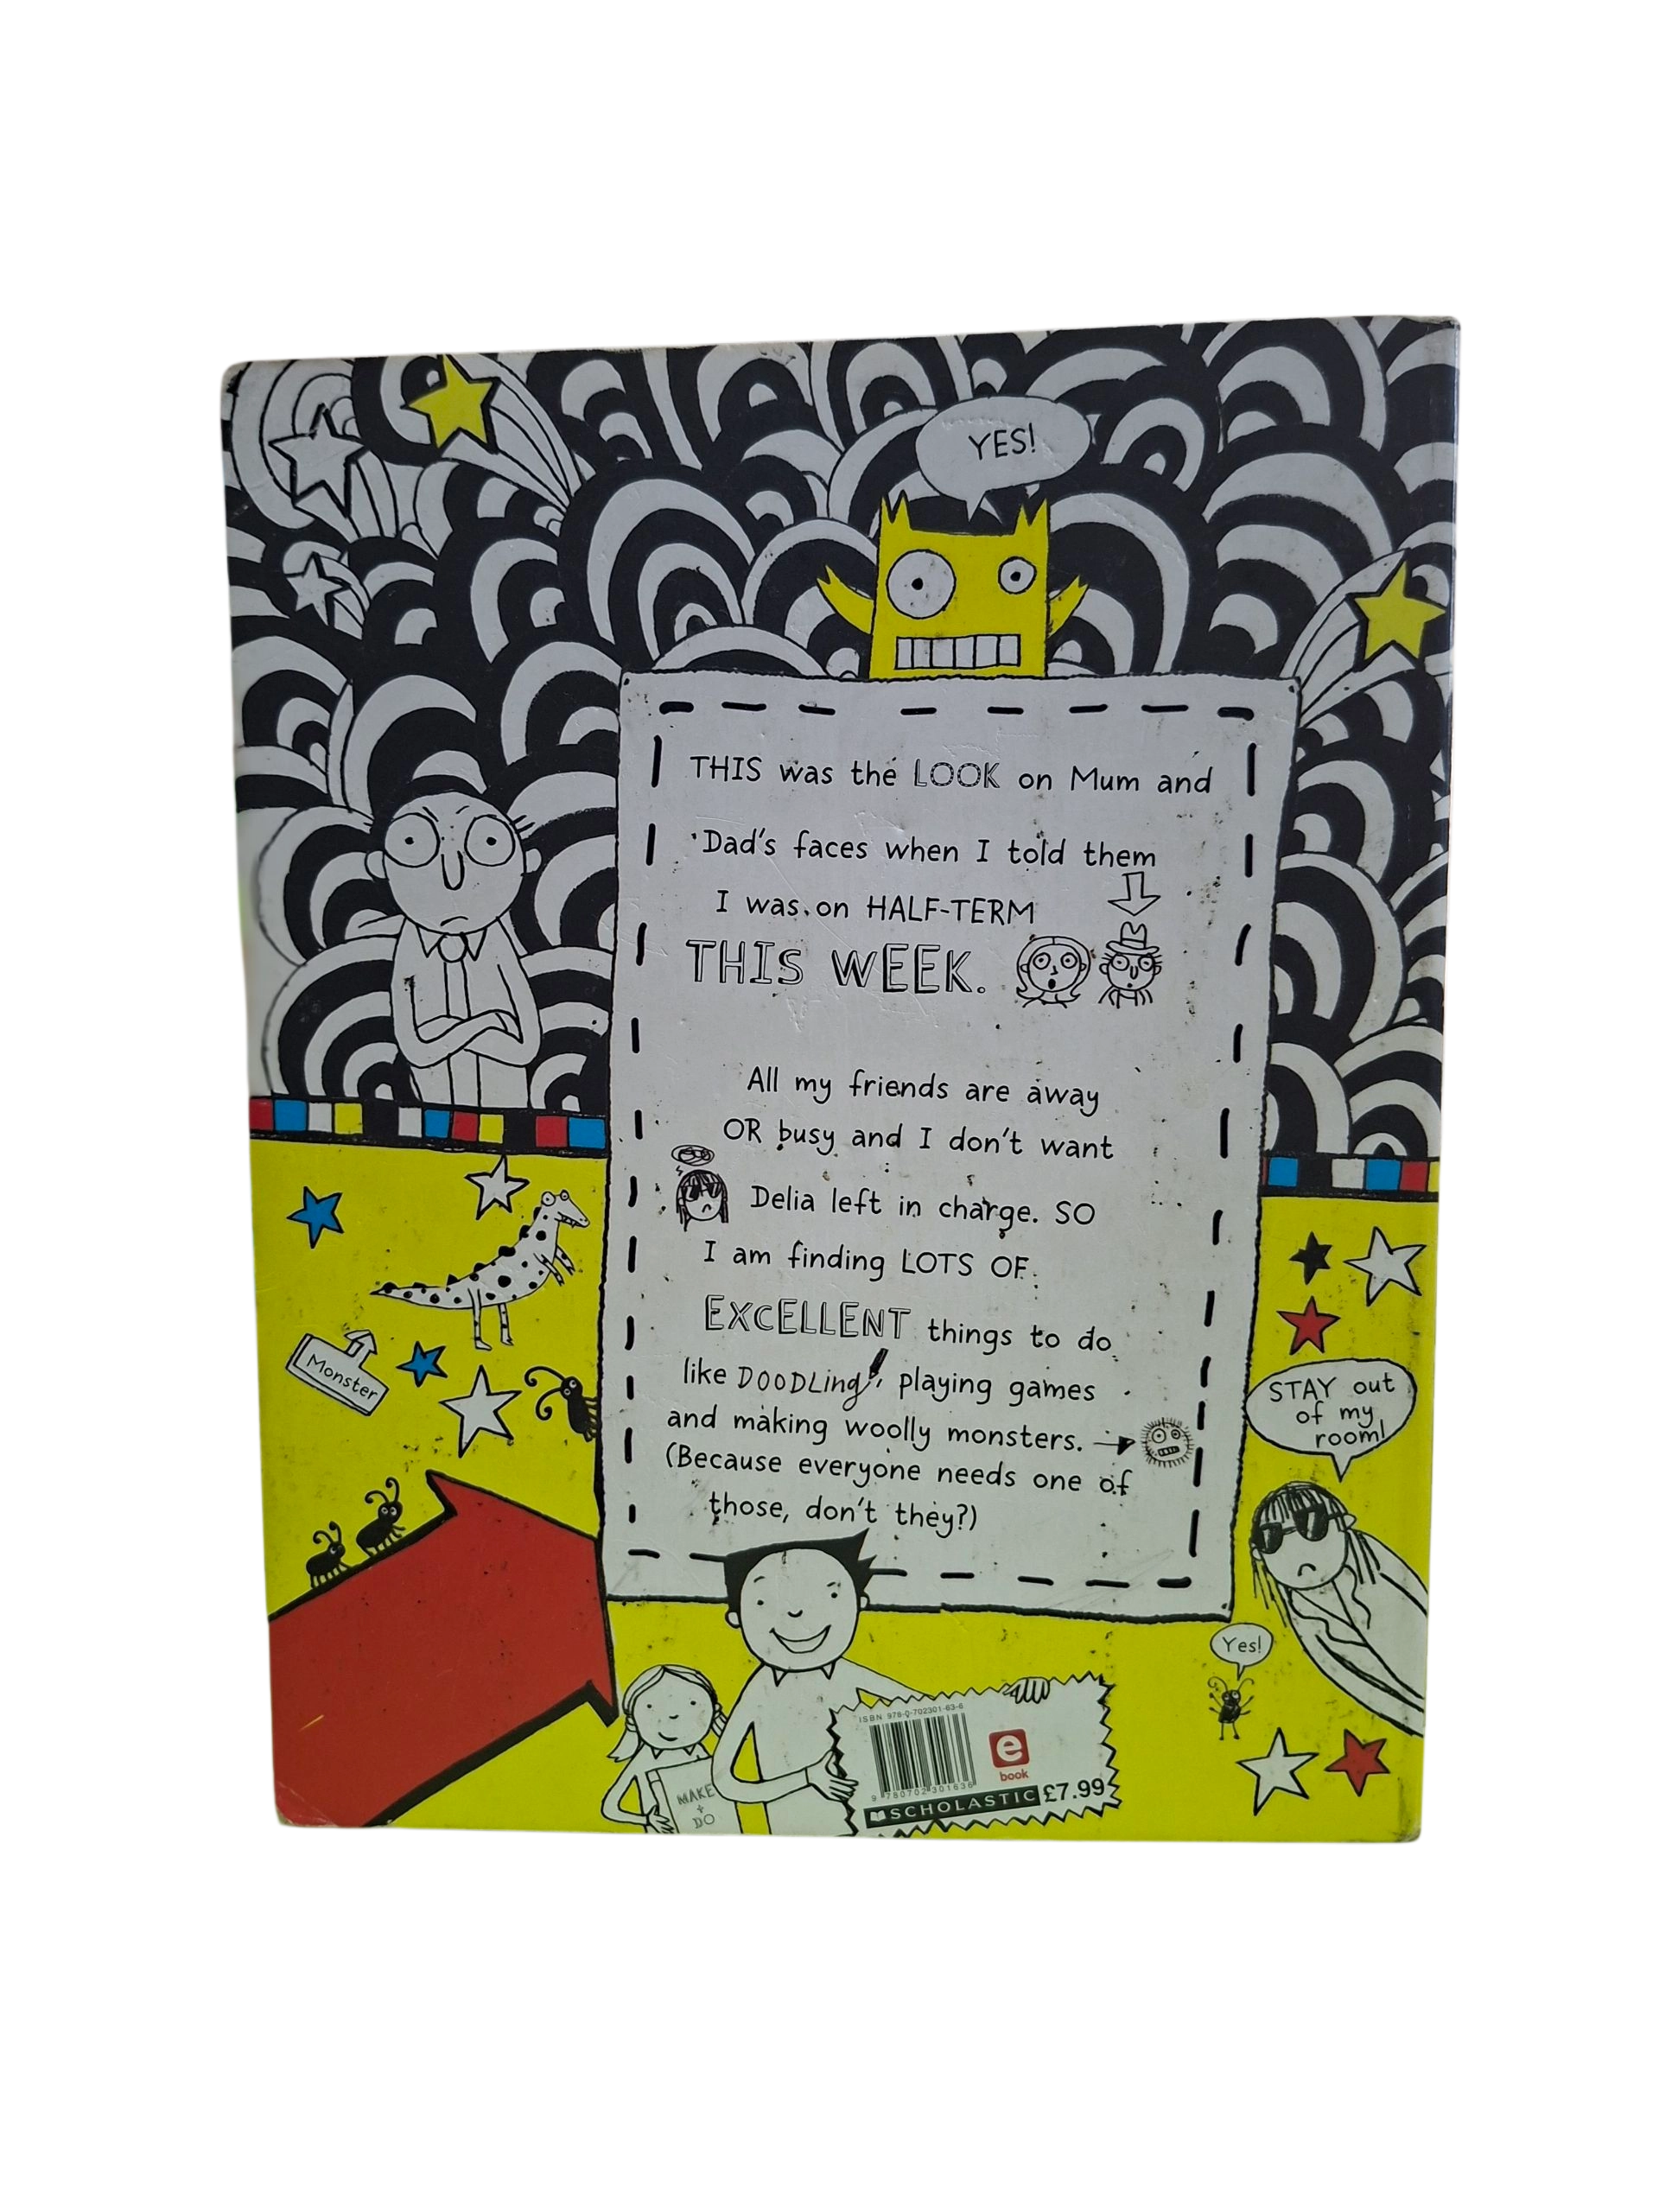 YES!
THIS was the LOOK on Mum and
Dad's faces when I told them
I was on HALF-TERM
THIS WEEK.
All my friends are away
OR busy and I don't want
Delia left in charge. SO
I am finding LOTS OF
EXCELLENT things to do
like DOODLing, playing games
and making woolly monsters.
(Because everyone needs one of
those, don't they?)
Monster
STAY out
of my
room!
Yes!
MAKE
+
DO
ISBN 978-0-702301-63-6
9 780702 301636
e
book
SCHOLASTIC £7.99